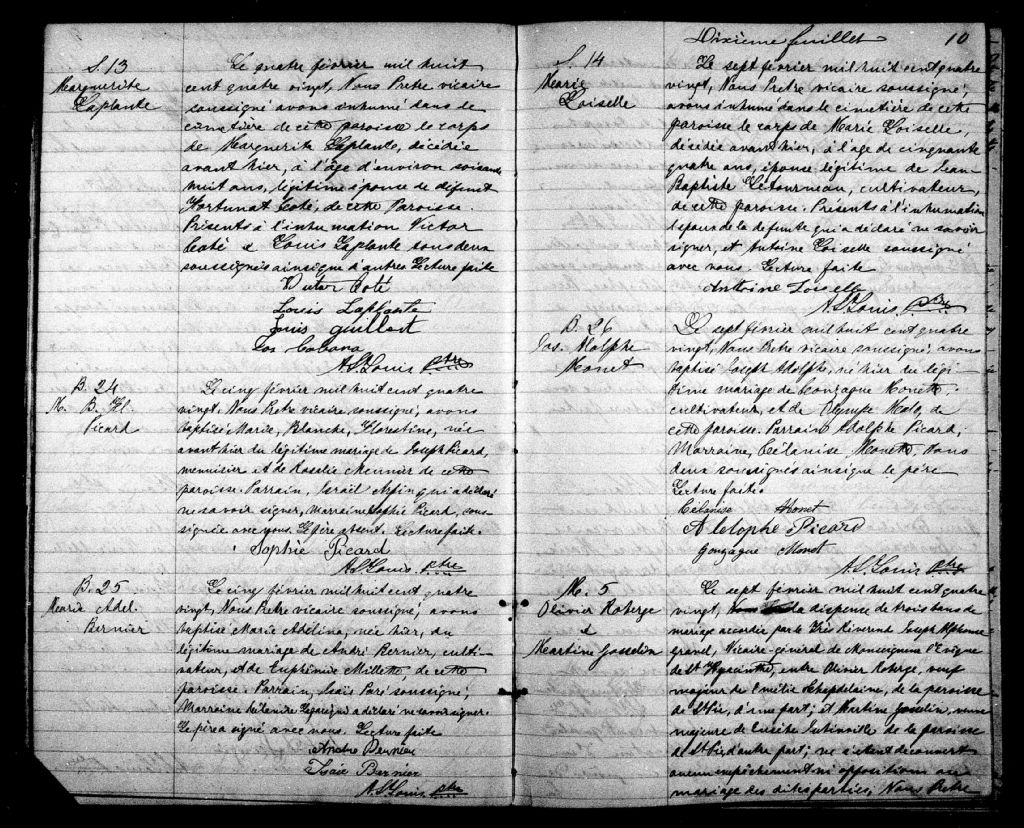 S. 13
Marguerite
Laplante
Le quatre février mil huit
cent quatre vingt, Nous Prêtre vicaire
soussigné avons inhumé dans le
cimetière de cette paroisse le corps
de Marguerite Laplante, décédée
avant hier, à l'âge d'environ soixante
huit ans, légitime épouse de défunt
Fortunat Coté, de cette Paroisse.
Présents à l'inhumation Victor
Coté & Louis Laplante tous deux
soussignés ainsi que d'autres Lecture faite
Victor Coté
Louis Laplante
Louis
Jos Cabana
A. St Louis Ptre
B. 24
M. B. Fl.
Picard
Le cinq février mil huit cent quatre
vingt, Nous Prêtre vicaire soussigné, avons
baptisé Marie, Blanche, Florestine, née
avant hier du légitime mariage de Joseph Picard,
menuisier et de Rosalie Meunier de cette
paroisse. Parrain, Israël qui a déclaré
ne savoir signer, Marraine Sophie Picard, sous-
signée avec nous. Le père absent. Lecture faite.
Sophie Picard
A. St Louis. Ptre
B. 25
Marie Adel.
Bernier
Le cinq février mil huit cent quatre
vingt, Nous Prêtre vicaire soussigné, avons
baptisé Marie Adelina, née hier, du
légitime mariage de André Bernier, culti-
vateur, et de Euphémie Millette de cette
paroisse. Parrain, Isaïe Paré soussigné,
Marraine a déclaré ne savoir signer.
Le père a signé avec nous. Lecture faite
André Bernier
Isaïe Bernier
A. St Louis Ptre
Dixième feuillet 10
S. 14
Marie
Loiselle
Le sept février mil huit cent quatre
vingt, Nous Prêtre vicaire soussigné,
avons inhumé dans le cimetière de cette
paroisse le corps de Marie Loiselle,
décédée avant hier, à l'âge de cinquante
quatre ans, épouse légitime de Jean
Baptiste Letourneau, cultivateur,
de cette paroisse. Présents à l'inhumation
l'epoux de la defunte qui a déclaré ne savoir
signer, et Antoine Loiselle soussigné
avec nous. Lecture faite
Antoine Loiselle
A. St Louis Ptre
B. 26
Jos. Adolphe
Monet
Le sept février mil huit cent quatre
vingt, Nous Prêtre vicaire soussigné, avons
baptisé Joseph Adolphe, né hier du légi-
time mariage de Gonzague Monette,
cultivateur, et de Olympe de
cette paroisse. Parrain Adolphe Picard,
Marraine, Célanise Monette, tous
deux soussignés ainsi que le père
Lecture faite.
Célanise Monet
Adolophe Picard
Gonzague Monet
A. St Louis Ptre
M. 5
Olivier Roberge
&
Martine Gosselin
Le sept février mil huit cent quatre
vingt, la dispense de trois bans de
mariage accordée par le Très Révérend Joseph Alphonse
gravel, Vicaire-général de Monseigneur l'Evêque
de St Hyacinthe, entre Olivier Roberge, veuf
majeur de Emélie de la paroisse
de St Pie, d'une part; et Martine Gosselin, veuve
majeure de Eusèbe de la paroisse
de St Pie d'autre part; ne s'étant découvert
aucun empêchement ni opposition au
mariage des dites parties, Nous Prêtre